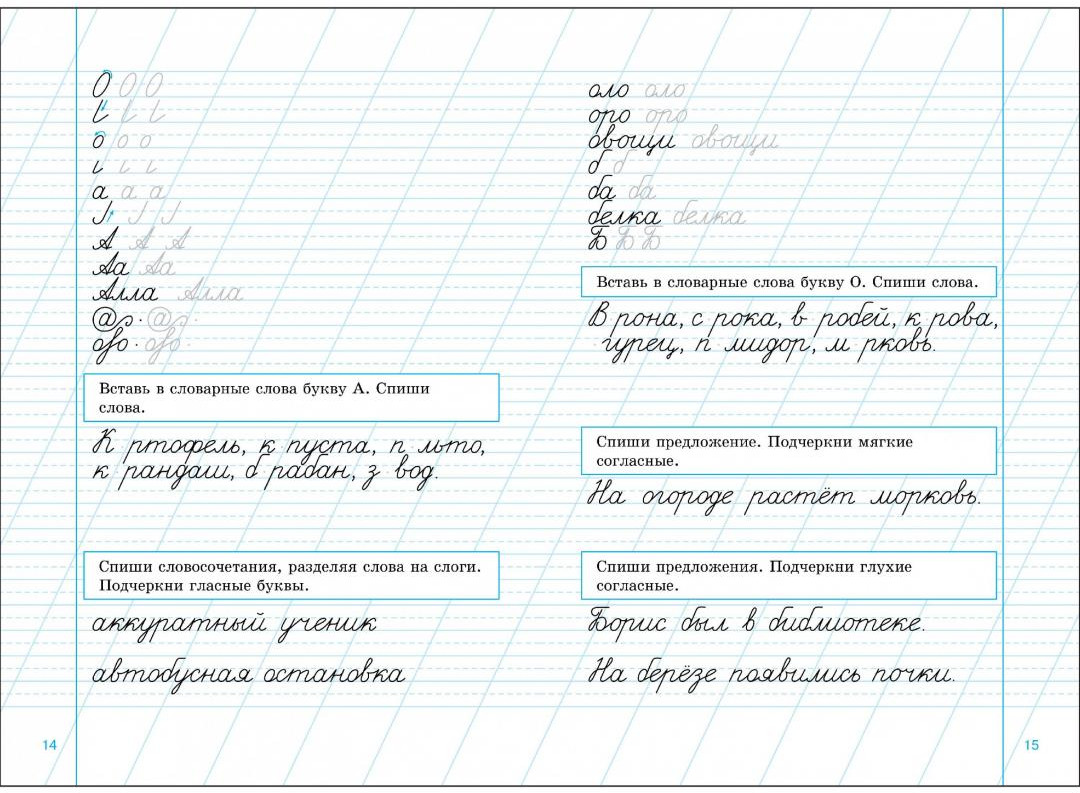 О О О
о о о
а а а
А А А
Аа Аа
Алла Алла
Вставь в словарные слова букву А. Спиши
слова.
К ртофель, к пуста, п льто,
к рандаш, б рабан, з вод.
Спиши словосочетания, разделяя слова на слоги.
Подчеркни гласные буквы.
аккуратный ученик
автобусная остановка
14
оло оло
оро оро
овощи овощи
б б
ба ба
белка белка
Б Б Б
Вставь в словарные слова букву О. Спиши слова.
В рона, с рока, в робей, к рова,
гурец, п мидор, м рковь.
Спиши предложение. Подчеркни мягкие
согласные.
На огороде растёт морковь.
Спиши предложения. Подчеркни глухие
согласные.
Борис был в библиотеке.
На берёзе появились почки.
15